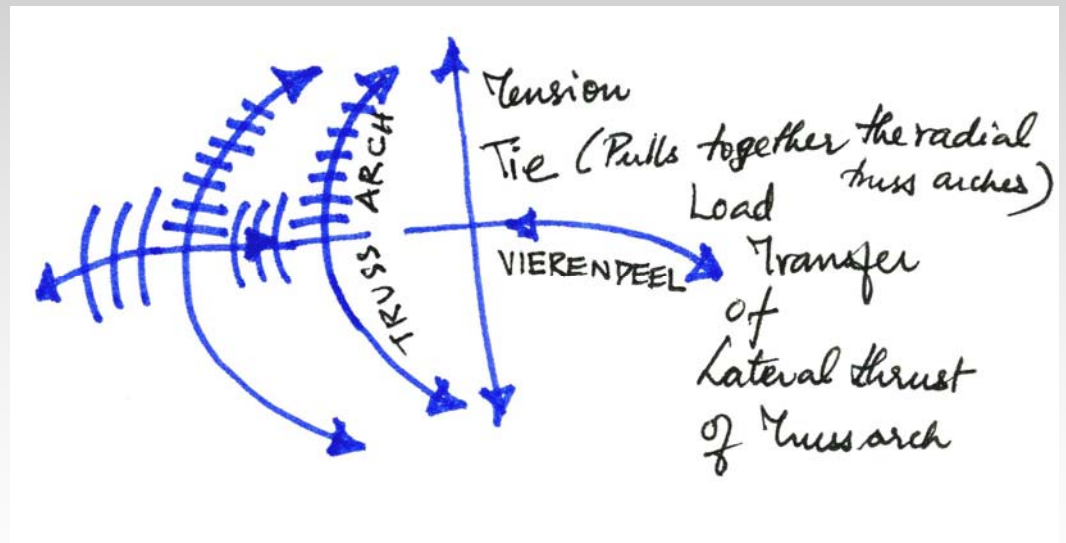 TRUSS ARCH
Tension
Tie (Pulls together the radial
truss arches)
Load
Transfer
of
Lateral thrust
of Truss arch
VIERENDEEL